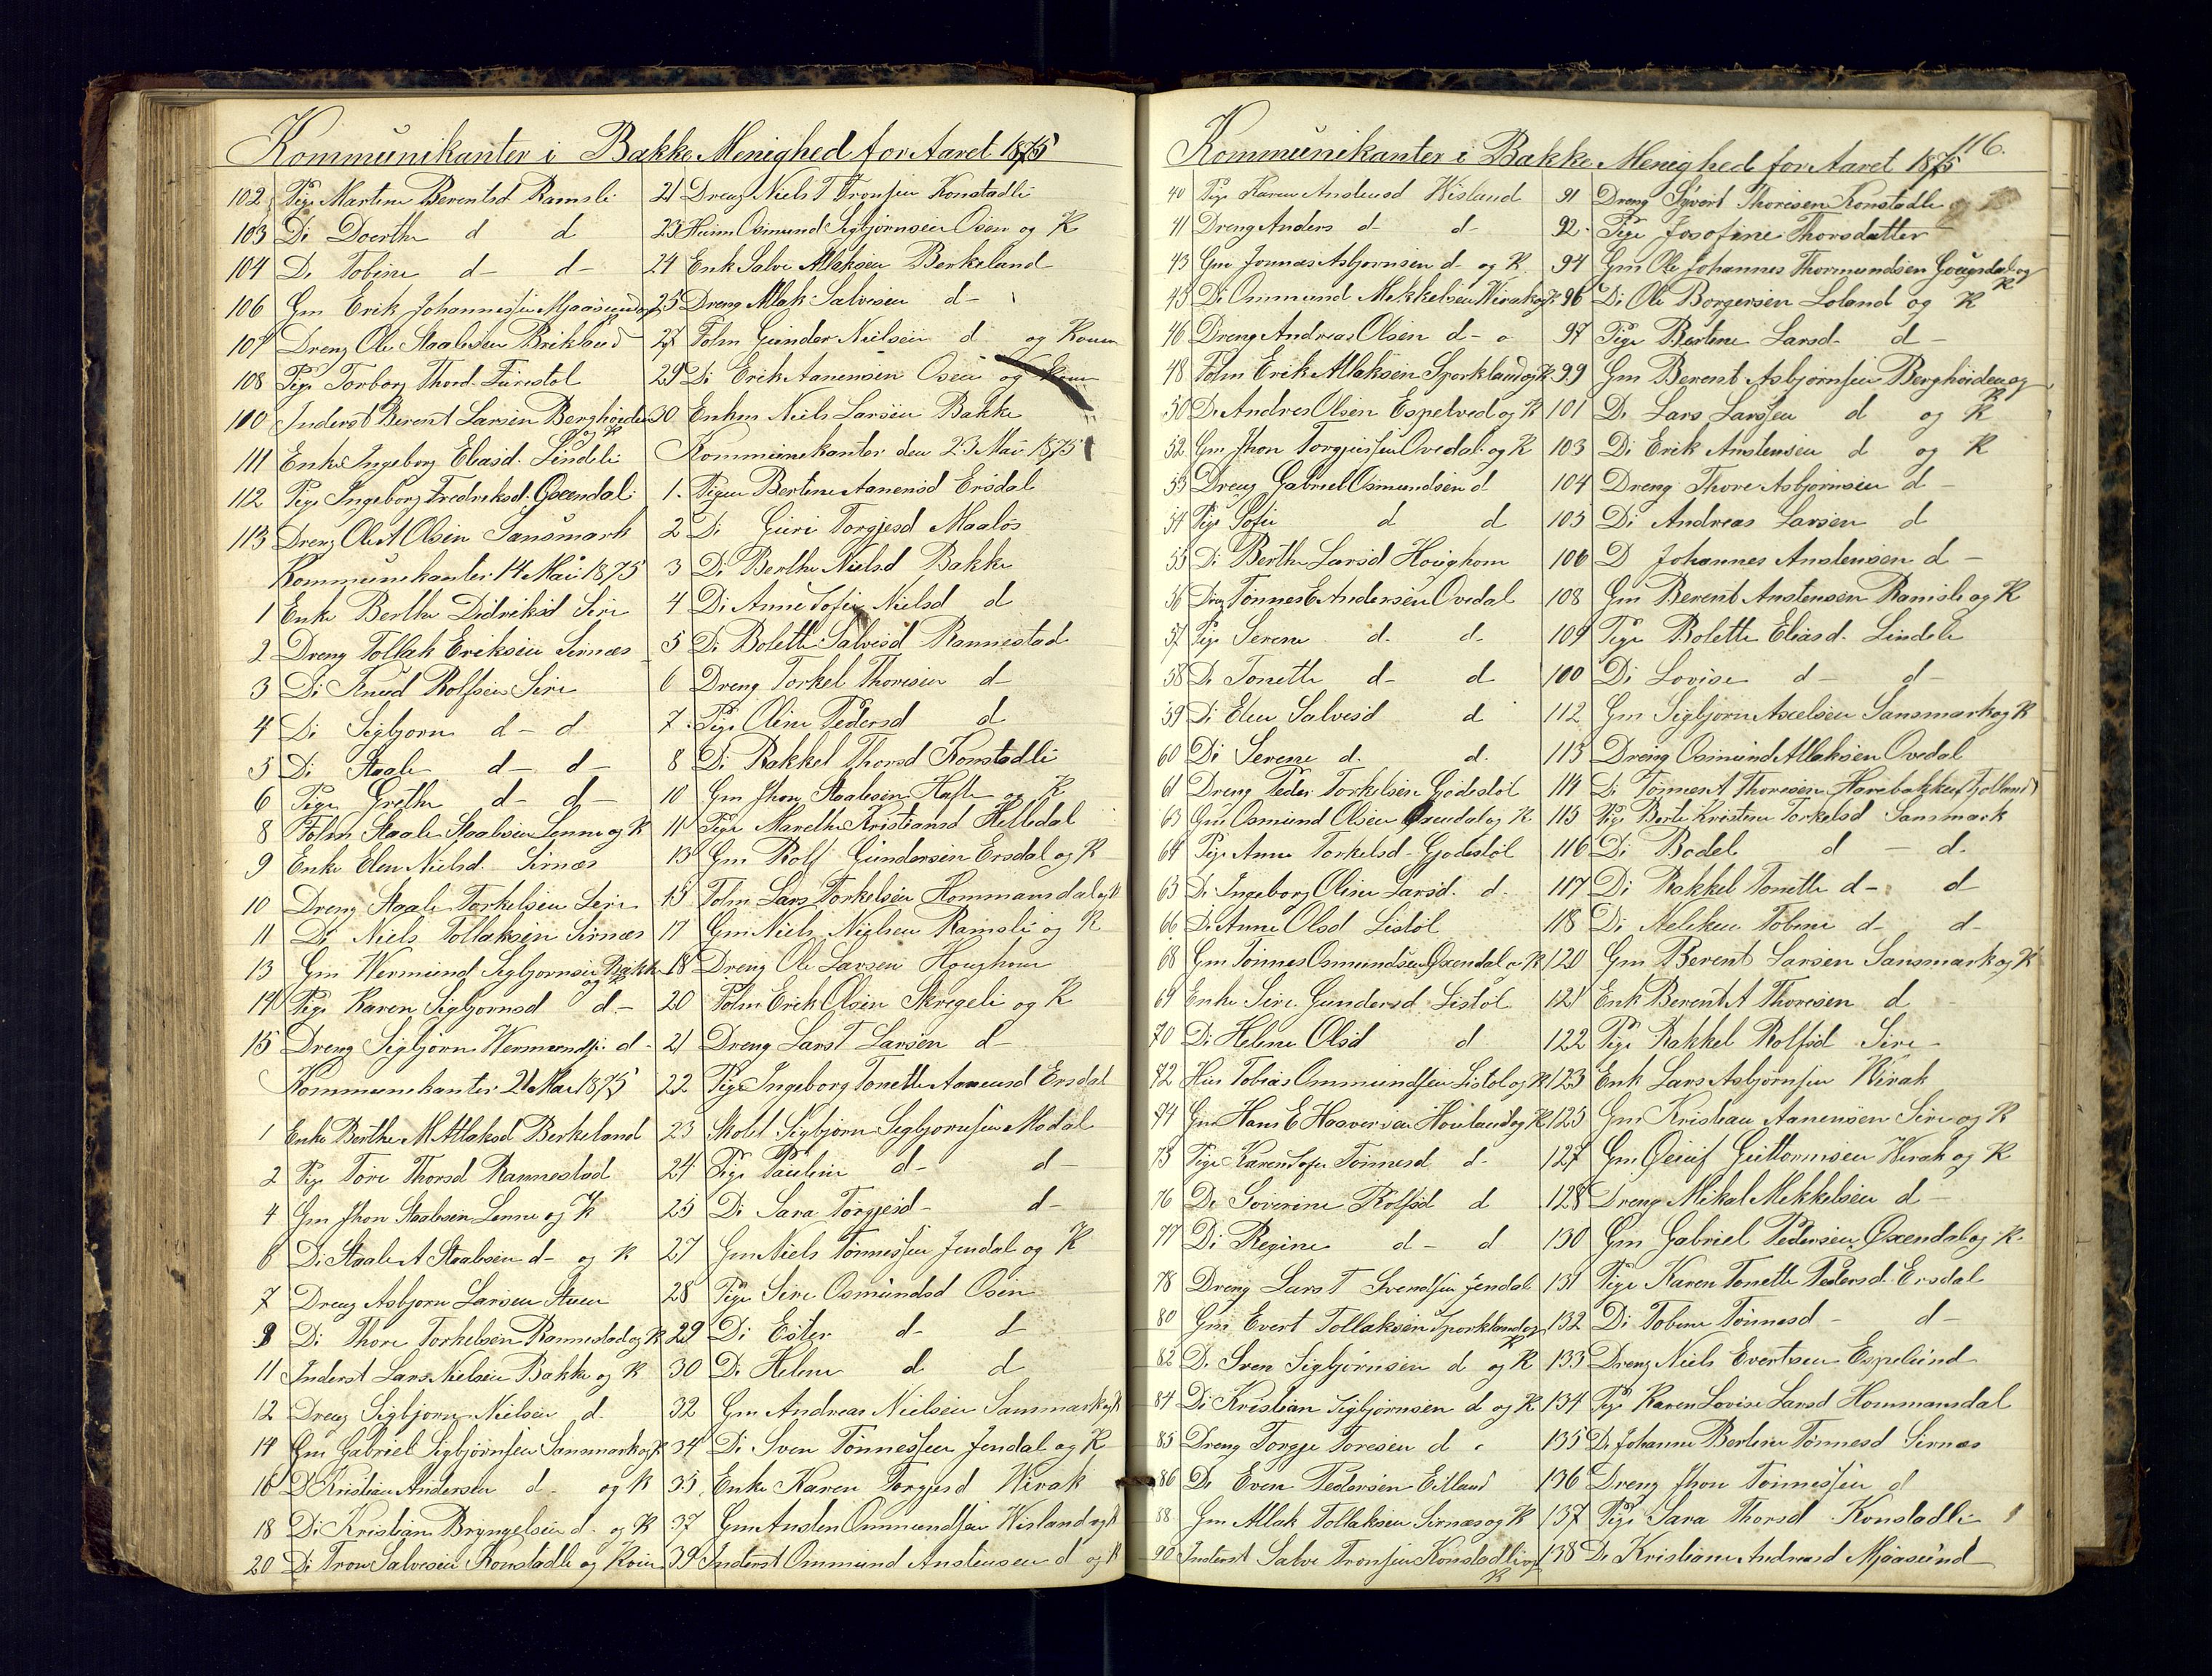 Kommunikanter i Bakke Menighed for Aaret 1875
102 Pige Martine Berentsd Ramsli
103 Di Doerthe d d
104 Di Tobine d- d-
106 Gm Erik Johannesen Mjaasund og K
107 Dreng Ole Staalesen Birkland
108 Pige Torborg Thord. Furestøl
100 Inderst Berent Larsen Berghøiden
og K
111 Enke Ingeborg Eliasd. Lindeli
112 Pige Ingeborg Fredriksd. Øxendal
113 Dreng Ole A Olsen Sansmark
Kommunikanter 14 Mai 1875
1 Enke Berthe Didriksd Sire
2 Dreng Tollak Eriksen Sirnæs
3 Di Knud Rolfsen Sire
4 Di Sigbjørn d- d
5 Di Staale d- d-
6 Pige Grethe d- d-
8 Folm Staale Staalesen Lenne og K
9 Enke Elen Nielsd. Sirnæs
10 Dreng Staale Torkelsen Sire
11 Di Niels Tollaksen Sirnæs
13 Gm Wermund Sigbjørnsen Bakke
og K
14 Pige Karen Sigbjørnsd d-
15 Dreng Sigbjørn Wermunds. d-
Kommunikanter 21 Mai 1875
1 Enke Berthe M Atlaksd Berkeland
2 Pige Tore Thorsd Rannestad
4 Gm Jhon Staalesen Lenne og K
6 Di Staale A Staalesen d- og K
7 Dreng Asbjørn Larsen Stuen
9 Di Thore Torkelsen Rannestad og K
11 Inderst Lars Nielsen Bakke og K
12 Dreng Sigbjørn Nielsen d.
14 Gm Gabriel Sigbjørnsen Sansmark og K
16 D Kristian Andersen d- og K
18 Di Kristian Bryngelsen d. og K
20 Di Tron Salvesen Konstadli og Kone
21 Dreng Niels T Tronsen Konstadli
23 Huum Osmund Sigbjørnsen Osen og K
24 Enk Salve Atlaksen Berkeland
25 Dreng Atlak Salvesen d-
27 Folm Gunder Nielsen d og Konen
29 Di Erik Aanensen Osen og Kone
30 Enkm Niels Larsen Bakke
Kommunikanter den 23 Mai 1875
1. Pigen Bertine Aanensd Ersdal
2 Di Guri Torgjesd Maaløs
3 Di Berthe Nielsd Bakke
4 Di Anne Sofie Nielsd d
5 Di Bolette Salvesd Rannestad
6 Dreng Torkel Thoresen d-
7. Pige Oline Pedersd d
8 Di Rakkel Thorsd Konstadli
10 Gm Jhon Staalesen Hafte og K
11 Pige Marethe Kristiansd Helledal
13 Gm Rolf Gundersen Ersdal og K
15 Folm Lars Torkelsen Hommansdal og K
17 Gm Niels Nielsen Ramsli og K
18 Dreng Ole Larsen Houghom
20 Folm Erik Olsen Skregeli og K
21 Dreng Lars T Larsen d-
22 Pige Ingeborg Tonette Aanensd Ersdal
23 Skolel Sigbjørn Sigbjørnsen Modal
24 Pige Pauline d- d-
25 Di Sara Torgjesd- d-
27 Gm Niels Tønnessen Jendal og K
28 Pige Sire Osmundsd Osen
29 Di Ester d- d
30 Di Helene d d
32 Gm Andreas Nielsen Sansmark og K
34 Di Sven Tønnessen Jendal og K
35 Enke Karen Torgjesd Wirak
37 Gm Ansten Ommundsen Wisland og K
39 Inderst Ommund Anstensen d og K
116.
Kommunikanter i Bakke Menighed for Aaret 1875
40 Pige Karen Anstensd Wisland
41 Dreng Anders d- d-
43 Gm Jonnas Asbjørnsen d- og K
45 Di Ommund Mekkelsen Wirak og K
46 Dreng Andreas Olsen d-
48 Folm Erik Atlaksen Sporkland og K
50 Di Andres Olsen Espetved og K
52 Gm Jhon Torgjussen Ovedal og K
53 Dreng Gabriel Osmundsen d
54 Pige Sofie d d
55 Di Berthe Larsd Houghom
56 Dreng Tønnes E Andersen Ovedal
57 Pige Serene d. d.
58 Di Tonette d- d
59 Di Elen Salvesd d
60 Di Serene d. d.
61 Dreng Peder Torkelsen Gjødestøl
63 Gm Osmund Olsen Øxendal og K
64 Pige Anne Torkelsd- Gjødestøl
65 Di Ingeborg Oline Larsd. d.
66 Di Anne Olsd Listøl
68 Gm Tønnes Osmundsen Øxendal o K
69 Enke Sire Gundersd Listøl
70 Di Helene Olsd d
72 Hus Tobias Ommundsen Listøl og K
74 Gm Hans E Haaversen Houland og K
75 Pige Karen Sofie Tønnesd d-
76 Di Soverine Rolfsd d
77 Di Regine d- d
78 Dreng Lars T Svendsen Jendal
80 Gm Evert Tollaksen Sporkland og
K
82 D. Sven Sigbjørnsen d og K
84 Di Kristian Sigbjørnsen d og K
85 Dreng Torgje Toresen d
86 Di Even Pedersen Eitland
88 Gm Atlak Tollaksen Sirnæs og K
90 Inderst Salve Tronsen Konstadli og
K
91 Dreng Syvert Thoresen Konstadli
92. Pige Josofine Thorsdatter
94 Gm Ole Johannes Thormundsen Gougsdal og
K
96 Di Ole Borgersen Loland og K
97 Pige Bertine Larsd- d-
99 Gm Berent Asbjørnsen Berghøiden og
K
101 Di Lars Larssen d og K
103 Di Erik Anstensen d og K
104 Dreng Thore Asbjørnsen d-
105 Di Andreas Larsen d
106 D Johannes Anstensen d-
108 Gm Berent Anstensen Ramsli og K
109 Pige Bolette Eliasd. Lindeli
100 Di Lovise d- d-
112 Gm Sigbjørn Axelsen Sansmark og K
113 Dreng Osmund Atlaksen Ovedal
114 Di Tønnes A Thoresen Harebakke (Fjotland)
115 Pige Berte Kristine Torkelsd Sansmark
116 Di Bodel d- d.
117 Di Rakkel Tonette d- d
118 Di Meleken Tobine d- d-
120 Gm Berent Larsen Sansmark og K
121 Enk Berent A Thoresen d
122 Pige Rakkel Rolfsd Sire
123 Enk Lars Asbjørnsen Wirak
125 Gm Kristian Aanensen Sire og K
127 Gm Guttormsen Wirak og K
128 Dreng Mikal Mekkelsen d-
130 Gm Gabriel Pedersen Øxendal og K
131 Pige Karen Tonette Pedersd. Ersdal
132 Di Tobine Tønnesd- d-
133 Dreng Niels Evertsen Espelund
134 Pige Karen Lovise Larsd Hommansdal
135 Di Johanne Bertine Tønnesd Sirnæs
136 Dreng Jhon Tønnessen d
137 Pige Sara Thorsd Konstadli
138 Di Kristiane Andreasd Mjaasund